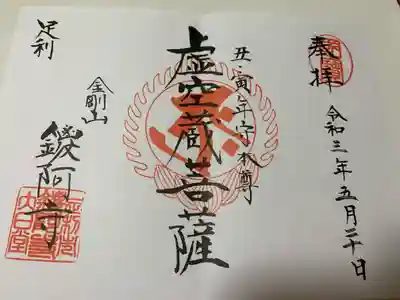 奉拝
令和三年五月二十日
丑・寅年守本尊
虚空蔵菩薩
金剛山
鑁阿寺
足利